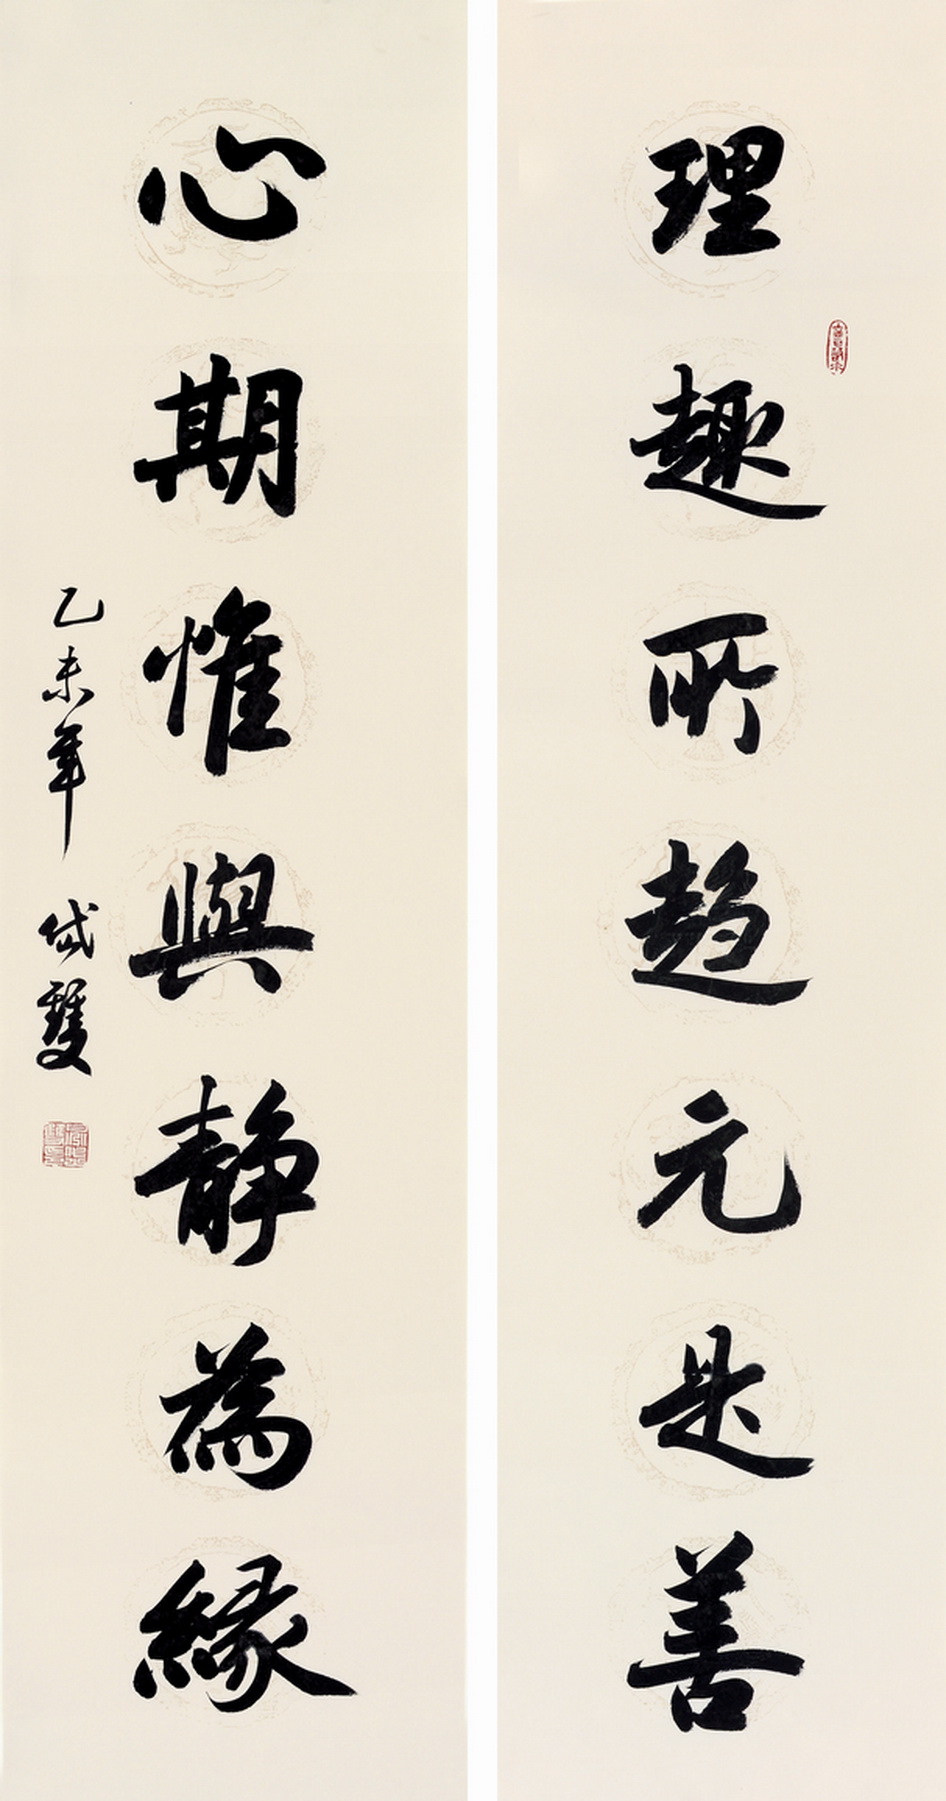 理趣所趋元是善
心期惟與静為緣
乙未年